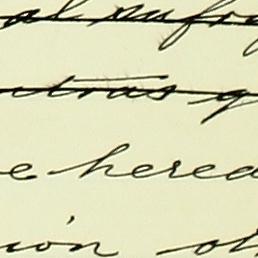 al sufra
otras q
e hered
ión ot